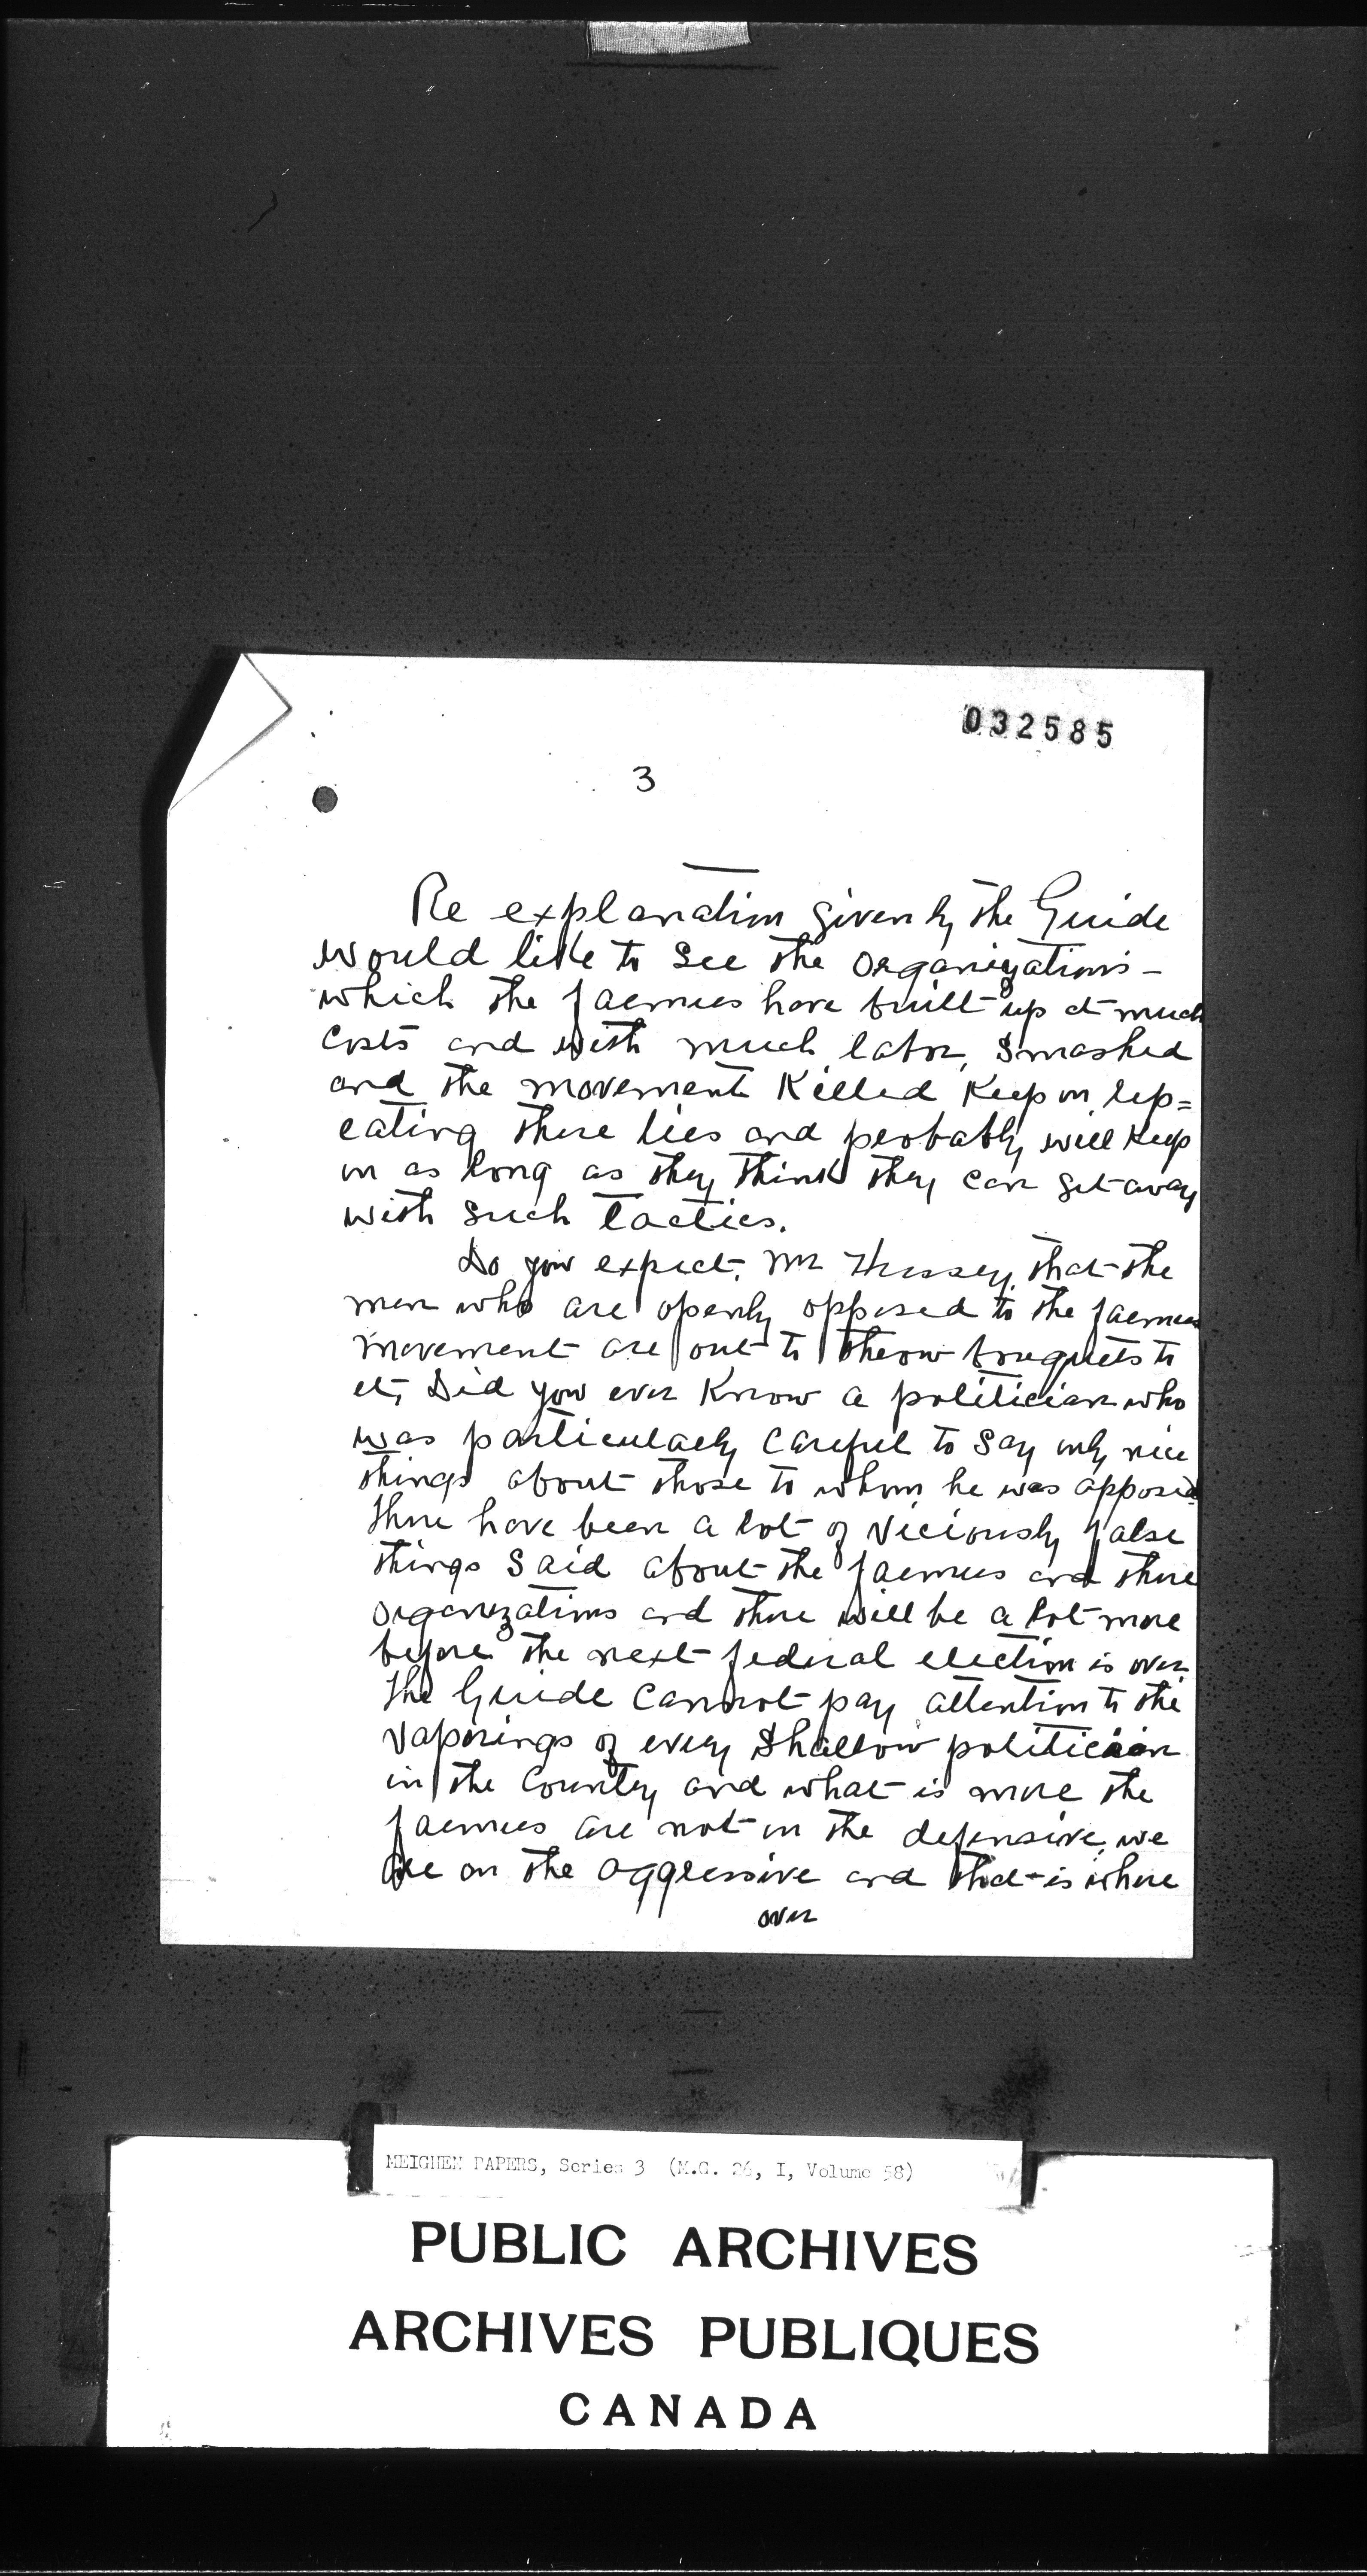 032585
3
Re explanation given by the Guide
would like to see the organizations -
which the farmers have built up at much
costs and with much labor, smashed
and the movement killed keep on rep=
eating these lies and probably will keep
on as long as they think they can get away
with such tactics.
Do you expect, Mr that the
men who are openly opposed to the farmers
movement are out to throw bouquets to
it, Did you ever know a politician who
was particularly careful to say only nice
things about those to whom he was opposed.
There have been a lot of viciously false
things said about the farmers and there
organizations and there will be a lot more
before the next federal election is over
The Guide cannot pay attention to the
vaporings of every shallow politician
in the country and what is more the
farmers are not on the defensive, we
are on the aggressive and that is where
over
MEIGHEN PAPERS, Series 3 (M.G. 26, I, Volume 58)
PUBLIC ARCHIVES
ARCHIVES PUBLIQUES
CANADA